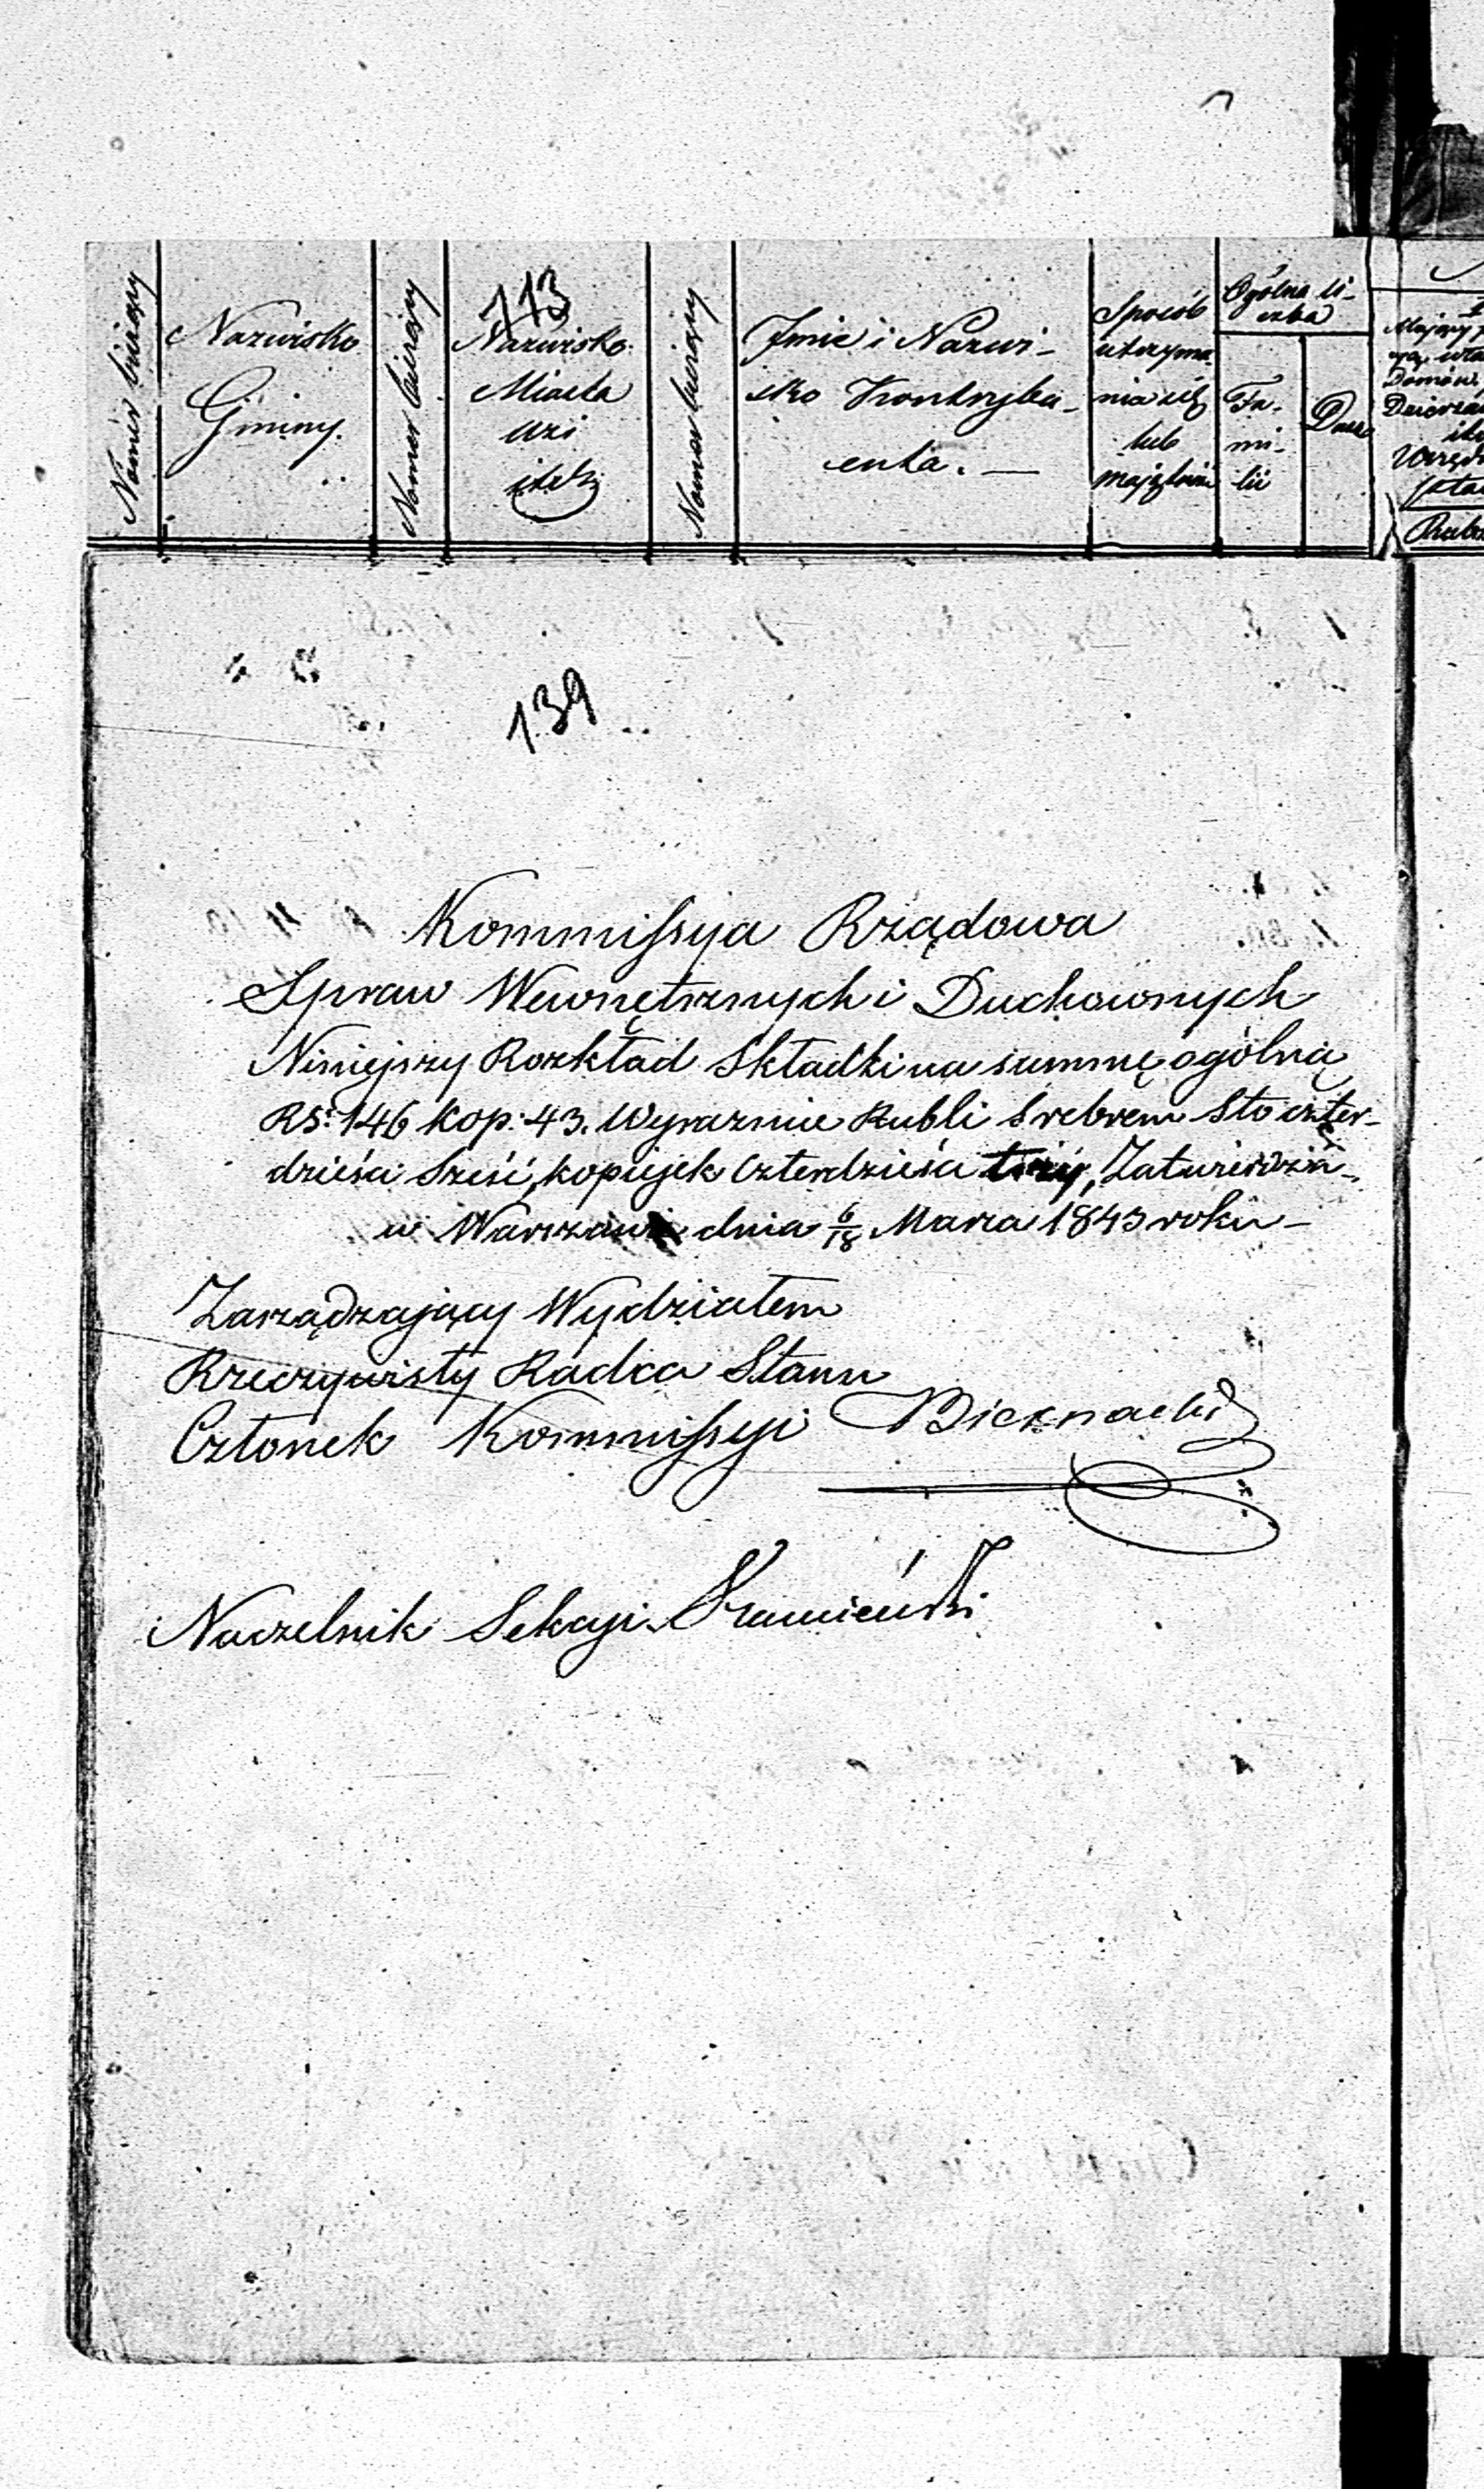 Numer bieżący
Nazwisko
Gminy.
Numer bieżący
113
Nazwisko
Miasta
wsi
itd
Numer bieżący
Imie i Nazwi-
sko Kontrybu-
enta. —
Sposób
utrzyma
nia się
lub
majątku
Ogólna li-
czba
Fa-
mi-
lii
Dusz
Mający
Domów
Dzierża
Urzęd
139
Kommissya Rządowa
Spraw Wewnętrznych i Duchownych
Niniejszy Rozkład Składki na summę ogólną
RS: 146 kop: 43. Wyraznie Rubli Srebrem Sto czter-
dzieści Sześć, kopiejek Czterdzieści trzy, Zatwierdza
w Warszawie dnia 6/18 Marca 1843 roku —
Zarządzający Wydziałem
Rzeczywisty Radca Stanu
Członek Kommissyi Biernacki
Naczelnik Sekcyi Kamieński